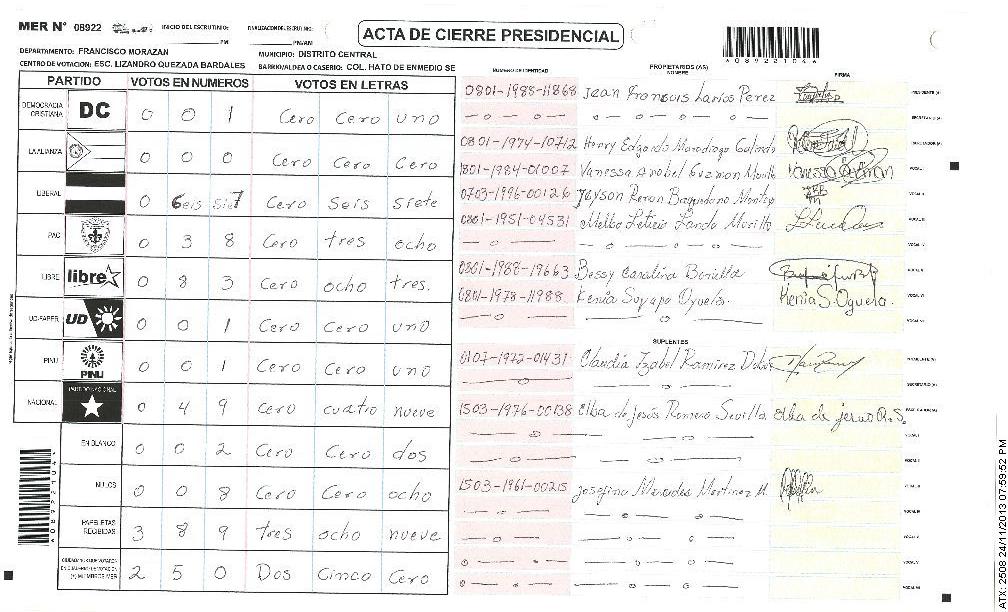 MER N° 08922 INICIO DEL ESCRUTINIO: FINALIZACION DEL ESCRUTINIO:
PM PM/AM
ACTA DE CIERRE PRESIDENCIAL
A089221044
DEPARTAMENTO: FRANCISCO MORAZAN MUNICIPIO: DISTRITO CENTRAL
CENTRO DE VOTACION: ESC. LIZANDRO QUEZADA BARDALES BARRIO/ALDEA O CASERIO: COL. HATO DE ENMEDIO SE
PARTIDO VOTOS EN NUMEROS VOTOS EN LETRAS
DEMOCRACIA CRISTIANA DC 0 0 1 Cero Cero uno
LA ALIANZA 0 0 0 Cero Cero Cero
LIBERAL 0 6eis sie7 Cero Seis siete
PAC 0 3 8 Cero tres ocho
LIBRE libre 0 8 3 Cero ocho tres.
UD-FAPER UD 0 0 1 Cero Cero uno
PINU PINU 0 0 1 Cero Cero uno
NACIONAL PARTIDO NACIONAL 0 4 9 Cero cuatro nueve
EN BLANCO 0 0 2 Cero Cero dos
NULOS 0 0 8 Cero Cero ocho
PAPELETAS RECIBIDAS 3 8 9 tres ocho nueve
CIUDADANOS QUE VOTARON EN CUADERNO DE VOTACION (+) MIEMBROS MER 2 5 0 Dos Cinco Cero
NUMERO DE IDENTIDAD PROPIETARIOS (AS) NOMBRE FIRMA
0801-1988-11868 Jean Francois Larios Perez PRESIDENTE (A)
SECRETARIO (A)
0801-1974-10712 Henry Edgardo Maradiaga Galindo ESCRUTADOR (A)
1801-1984-01007 Vanessa Anabel Guzman VOCAL I
0703-1996-00126 Jeyson VOCAL II
0801-1951-04531 Melba Leticia Landa Murillo VOCAL III
VOCAL IV
0801-1988-19663 Bessy Carolina Bonilla VOCAL V
0801-1978-11988 Kenia Suyapa Oyuela. Kenia S. Oyuela. VOCAL VI
VOCAL VII
SUPLENTES
0107-1972-01431 Claudia Izabel Ramirez PRESIDENTE (A)
SECRETARIO (A)
1503-1976-00138 Elba de Jesús Romero Sevilla elba de jesus R.S. ESCRUTADOR (A)
VOCAL I
VOCAL II
1503-1961-00215 Josefina Mercedes Martinez M. VOCAL III
VOCAL IV
VOCAL V
VOCAL VI
VOCAL VII
A089221044
ATX: 2508 24/11/2013 07:59:52 PM